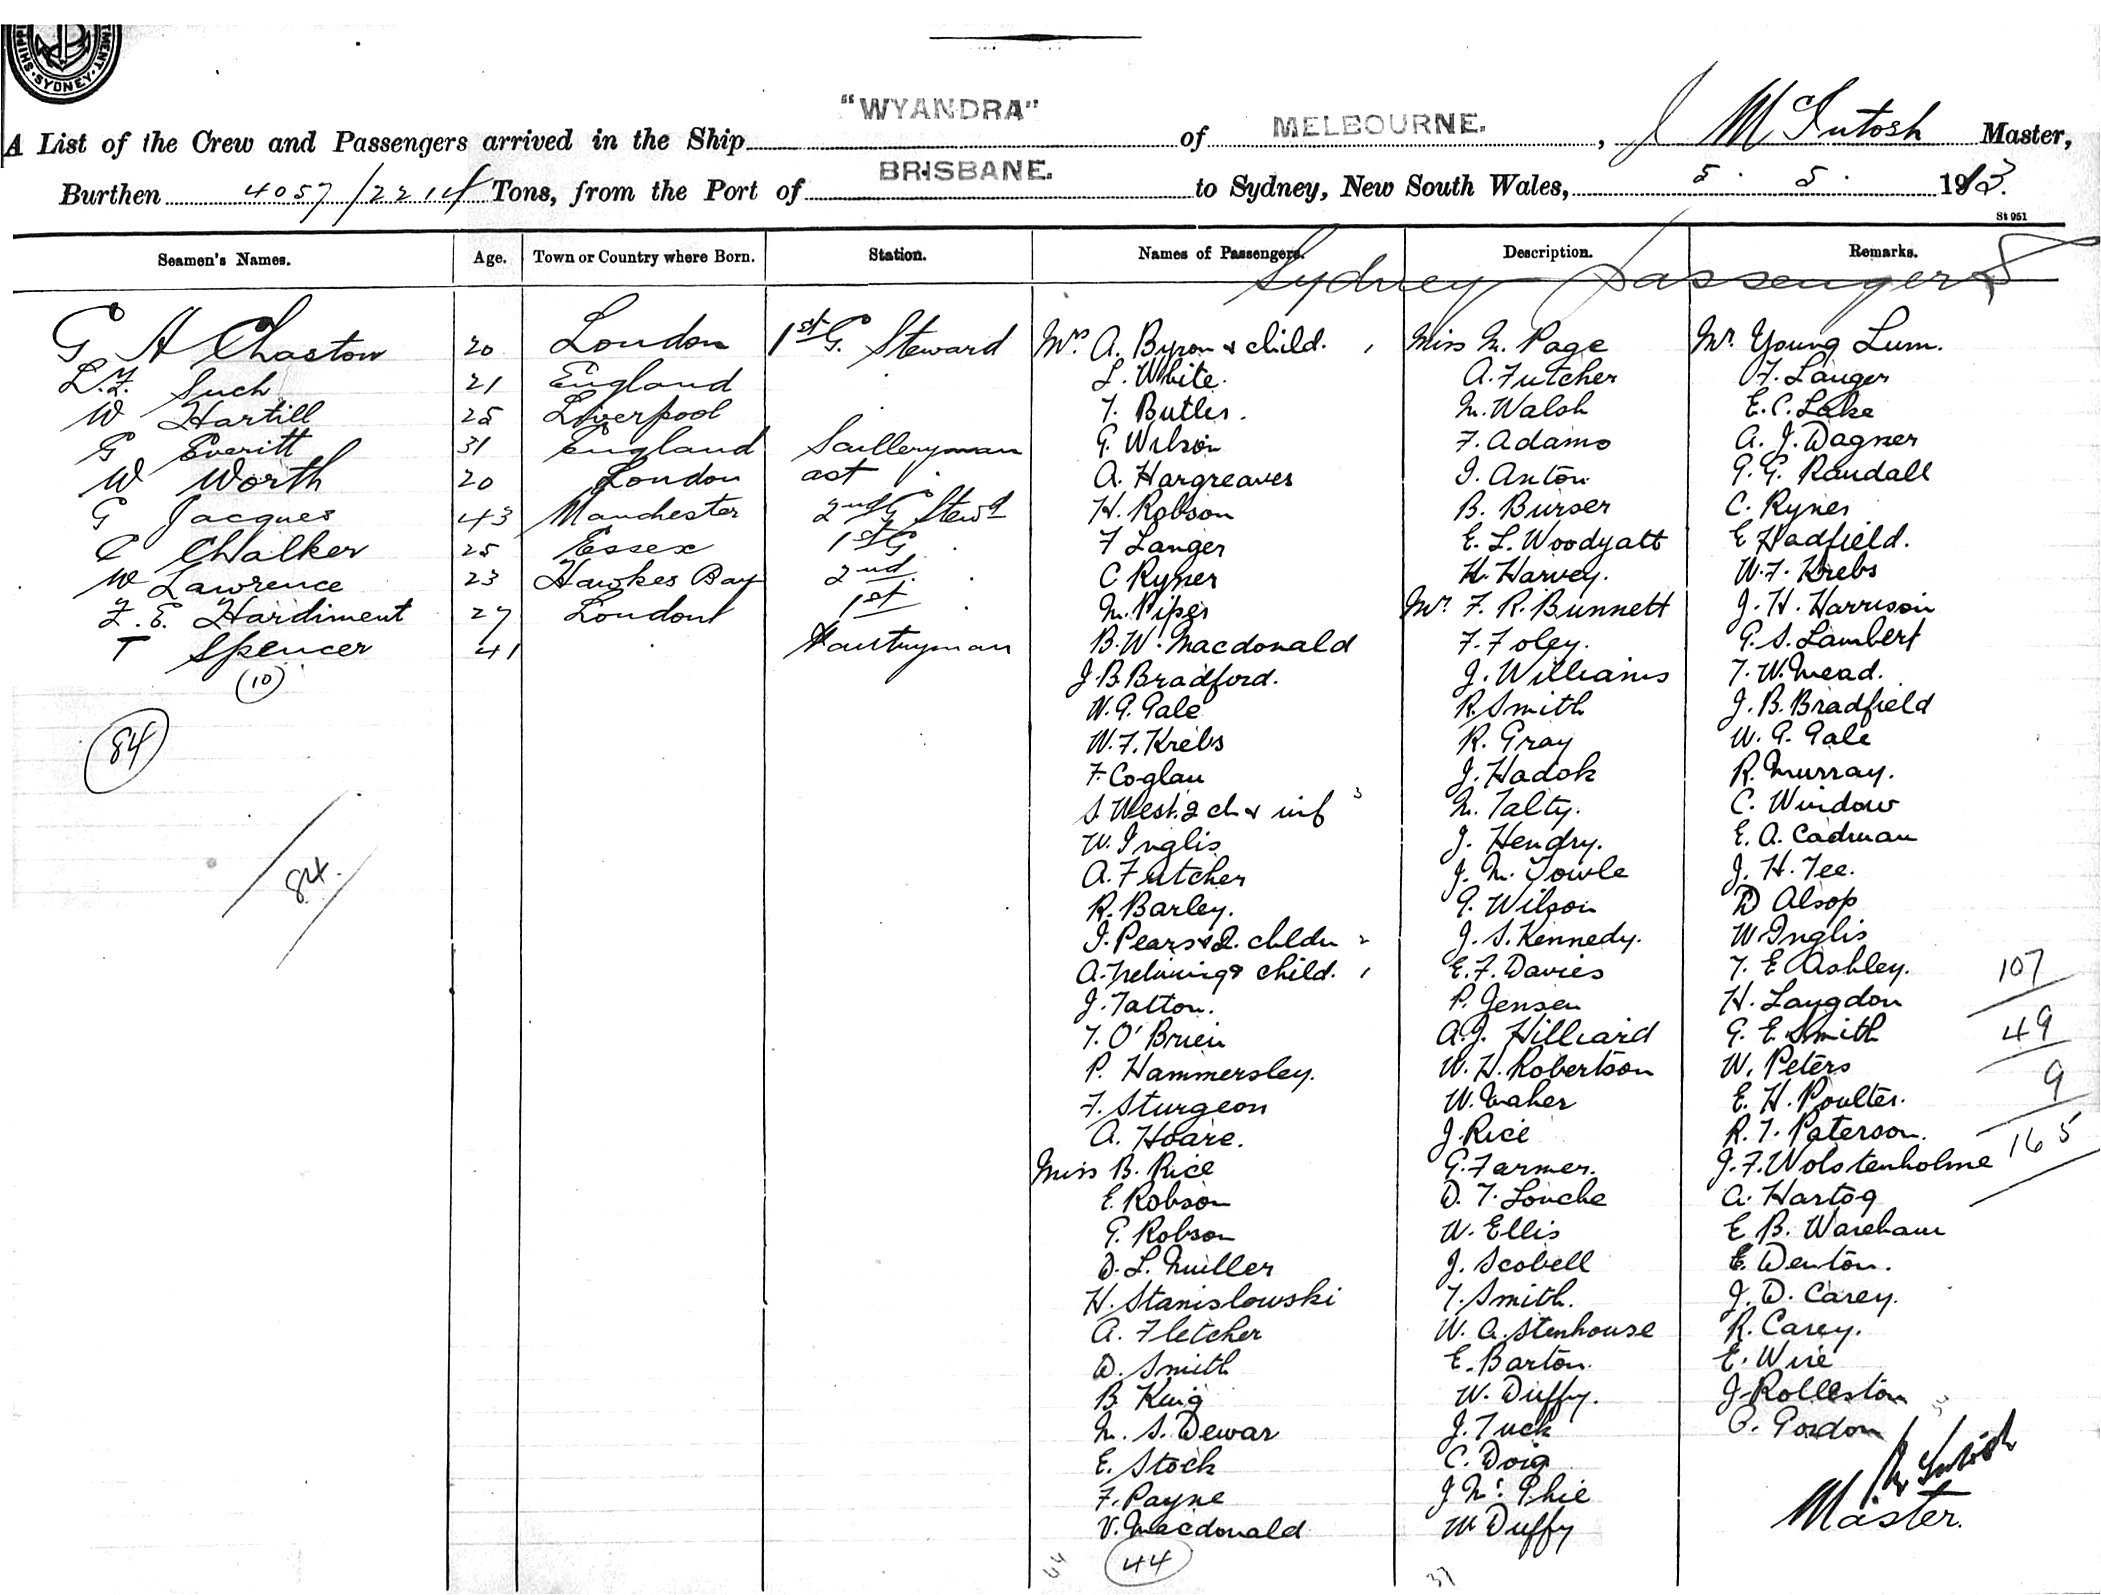 SHIPPING DEPARTMENT SYDNEY
A List of the Crew and Passengers arrived in the Ship "WYANDRA" of MELBOURNE., J McIntosh Master,
Burthen 4057/2214 Tons, from the Port of BRISBANE. to Sydney, New South Wales, 5. 5. 1913.
St 951
Seamen's Names. Age. Town or Country where Born. Station. Names of Passengers. Description. Remarks.
Sydney Passengers
G A Chaston 20 London 1st G. Steward
L.F. Such 21 England
W Hartill 25 Liverpool
G Everitt 31 England Sculleryman
W Worth 20 London ast
G Jacques 43 Manchester 2nd G Stewd
C Chalker 25 Essex 1st G
W Lawrence 23 Hawkes Bay 2nd
F. E. Hardiment 27 London 1st
T Spencer 41 Pantryman
(10)
84
84.
Mrs A. Byron & child. 1
L. White.
T. Butler.
G. Wilson
A. Hargreaves
H. Robson
F Langer
C Rymer
M. Piper
B. W. Macdonald
J. B. Bradford.
W. G. Gale
W. F. Krebs
F. Coglan
S West. 2 ch & inf 3
W. Inglis
A. Futcher
R. Barley.
I. Pears & 2. childn 2
& child. 1
J. Tatton.
T. O'Brien
P. Hammersley.
F. Sturgeon
A. Hoare.
Miss B. Rice
E. Robson
G. Robson
D. L. Muller
H. Stanislowski
A. Fletcher
D. Smith
B. King
M. S. Dewar
E. Stock
F. Payne
V. Macdonald
44
44
Miss M. Page
A. Futcher
M. Walsh
F. Adams
I. Anton
B. Burser
E. L. Woodyatt
K. Harvey.
Mr. F. R. Bunnett
F. Foley.
J. Williams
R. Smith
R. Gray
J. Hadok
M. Talty.
J. Hendry.
J. M. Towle
G. Wilson
J. S. Kennedy.
E. F. Davies
P. Jensen
A. J. Hilliard
W. H. Robertson
W. Maher
J. Rice
G. Farmer.
D. T. Louche
W. Ellis
J. Scobell
T. Smith.
W. A. Stenhouse
E. Barton.
W. Duffy.
J. Tuck
C. Doig
J Mc Phie
M Duffy
37
Mr. Young Lum.
F. Langer
E. C. Lake
A. J. Wagner
G. G. Randall
C. Ryner
E Hadfield.
W. F. Krebs
J. H. Harrison
G. S. Lambert
T. W. Mead.
J. B. Bradfield
W. G. Gale
R. Murray.
C. Window
E. A. Cadman
J. H. Tee.
D Alsop
W Inglis
T. E Ashley.
H. Langdon
G. E. Smith
W. Peters
E. H. Poulter.
R. T. Paterson.
J. F. Wolstenholme
A. Hartog
E B. Wareham
E. Denton.
J. D. Carey.
R. Carey.
E. Wire
J. Rolleston
Gordon
107
49
9
165
McIntosh
Master.